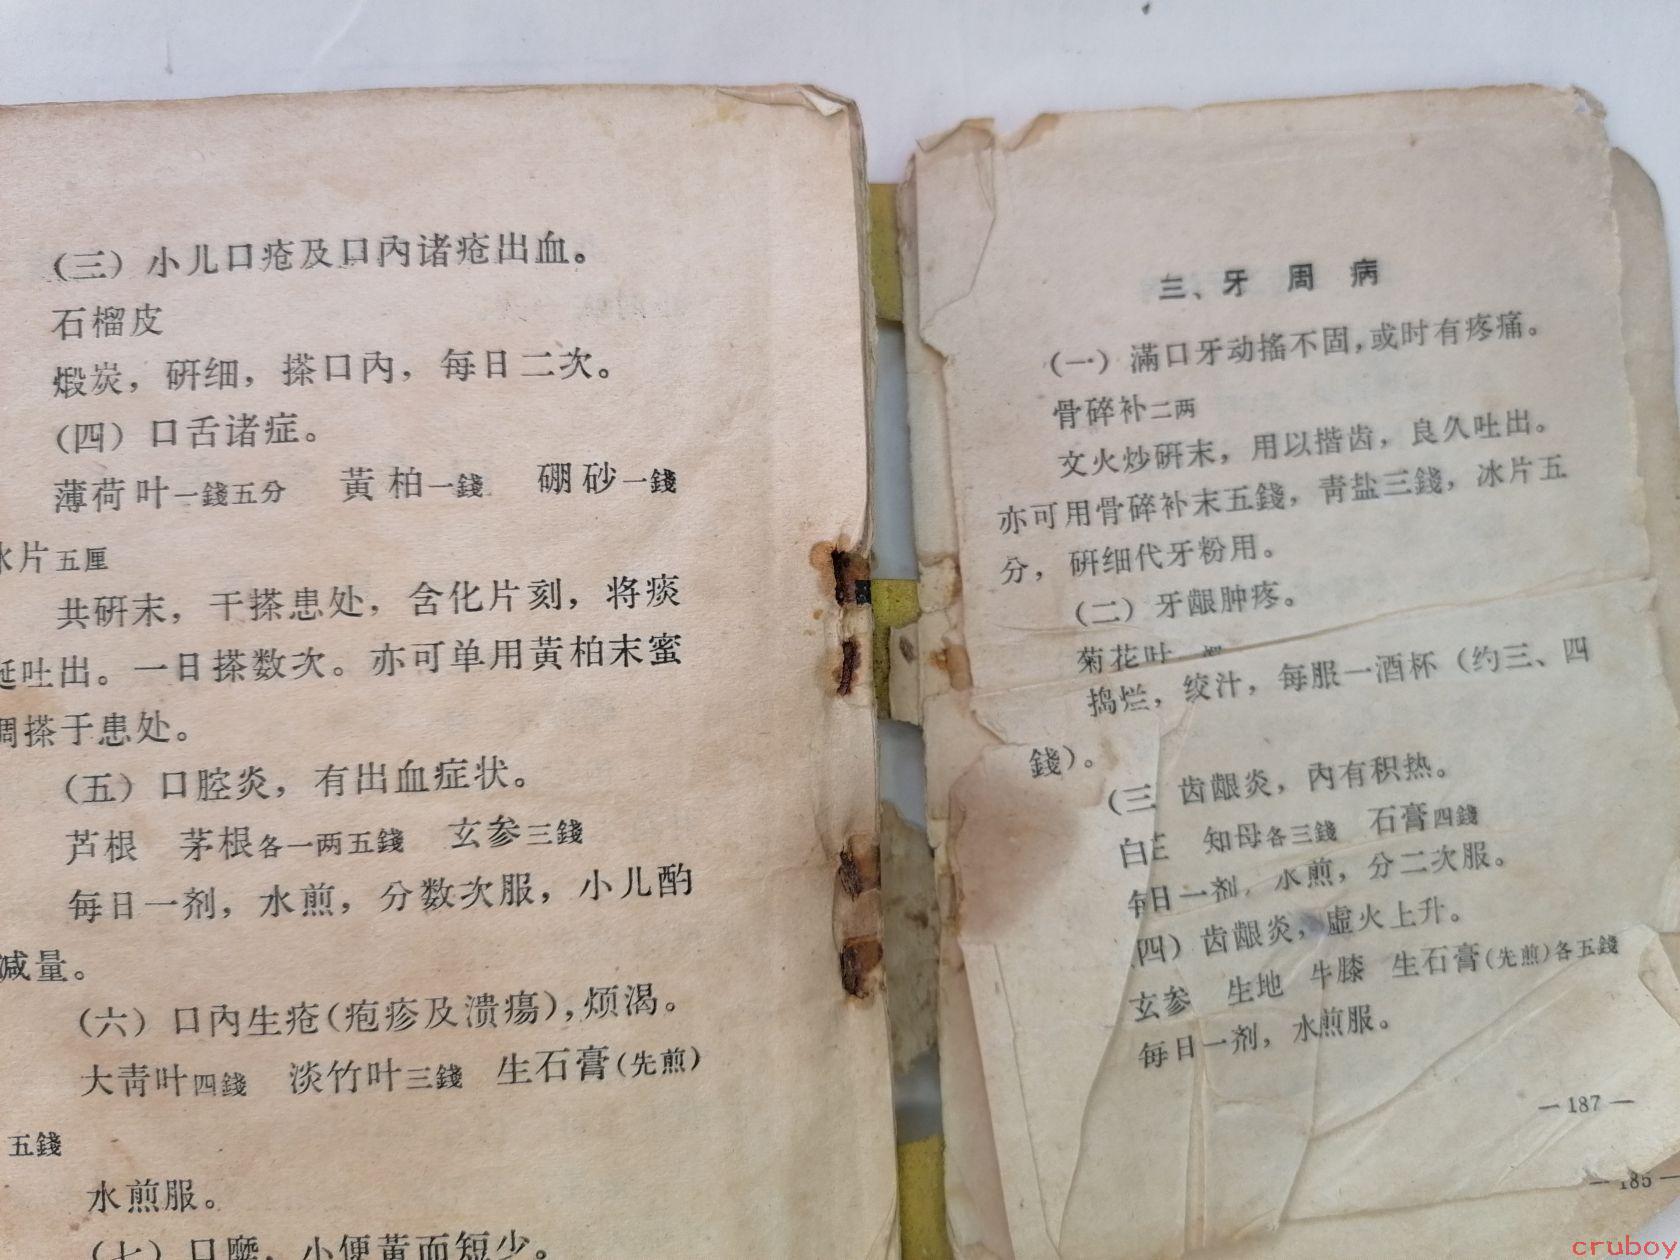 (三) 小儿口疮及口內诸疮出血。
石榴皮
煅炭，研细，搽口內，每日二次。
(四) 口舌诸症。
薄荷叶一錢五分 黄柏一錢 硼砂一錢
片五厘
共研末，干搽患处，含化片刻，将痰
吐出。一日搽数次。亦可单用黄柏末蜜
搽于患处。
(五) 口腔炎，有出血症状。
芦根 茅根各一两五錢 玄参三錢
每日一剂，水煎，分数次服，小儿酌
减量。
(六) 口內生疮(疱疹及溃瘍)，烦渴。
大靑叶四錢 淡竹叶三錢 生石膏(先煎)
五錢
水煎服。
(七) 口糜，小便黄而短少。
三、牙周病
(一) 滿口牙动搖不固，或时有疼痛。
骨碎补二两
文火炒研末，用以揩齿，良久吐出。
亦可用骨碎补末五錢，靑盐三錢，冰片五
分，研细代牙粉用。
(二) 牙龈肿疼。
菊花叶
捣烂，绞汁，每服一酒杯(约三、四
錢)。
(三 齿龈炎，內有积热。
白 知母各三錢 石膏四錢
每日一剂，水煎，分二次服。
四) 齿龈炎，虛火上升。
玄参 生地 牛膝 生石膏(先煎)各五錢
每日一剂，水煎服。
— 187 —
— 185 —
cruboy